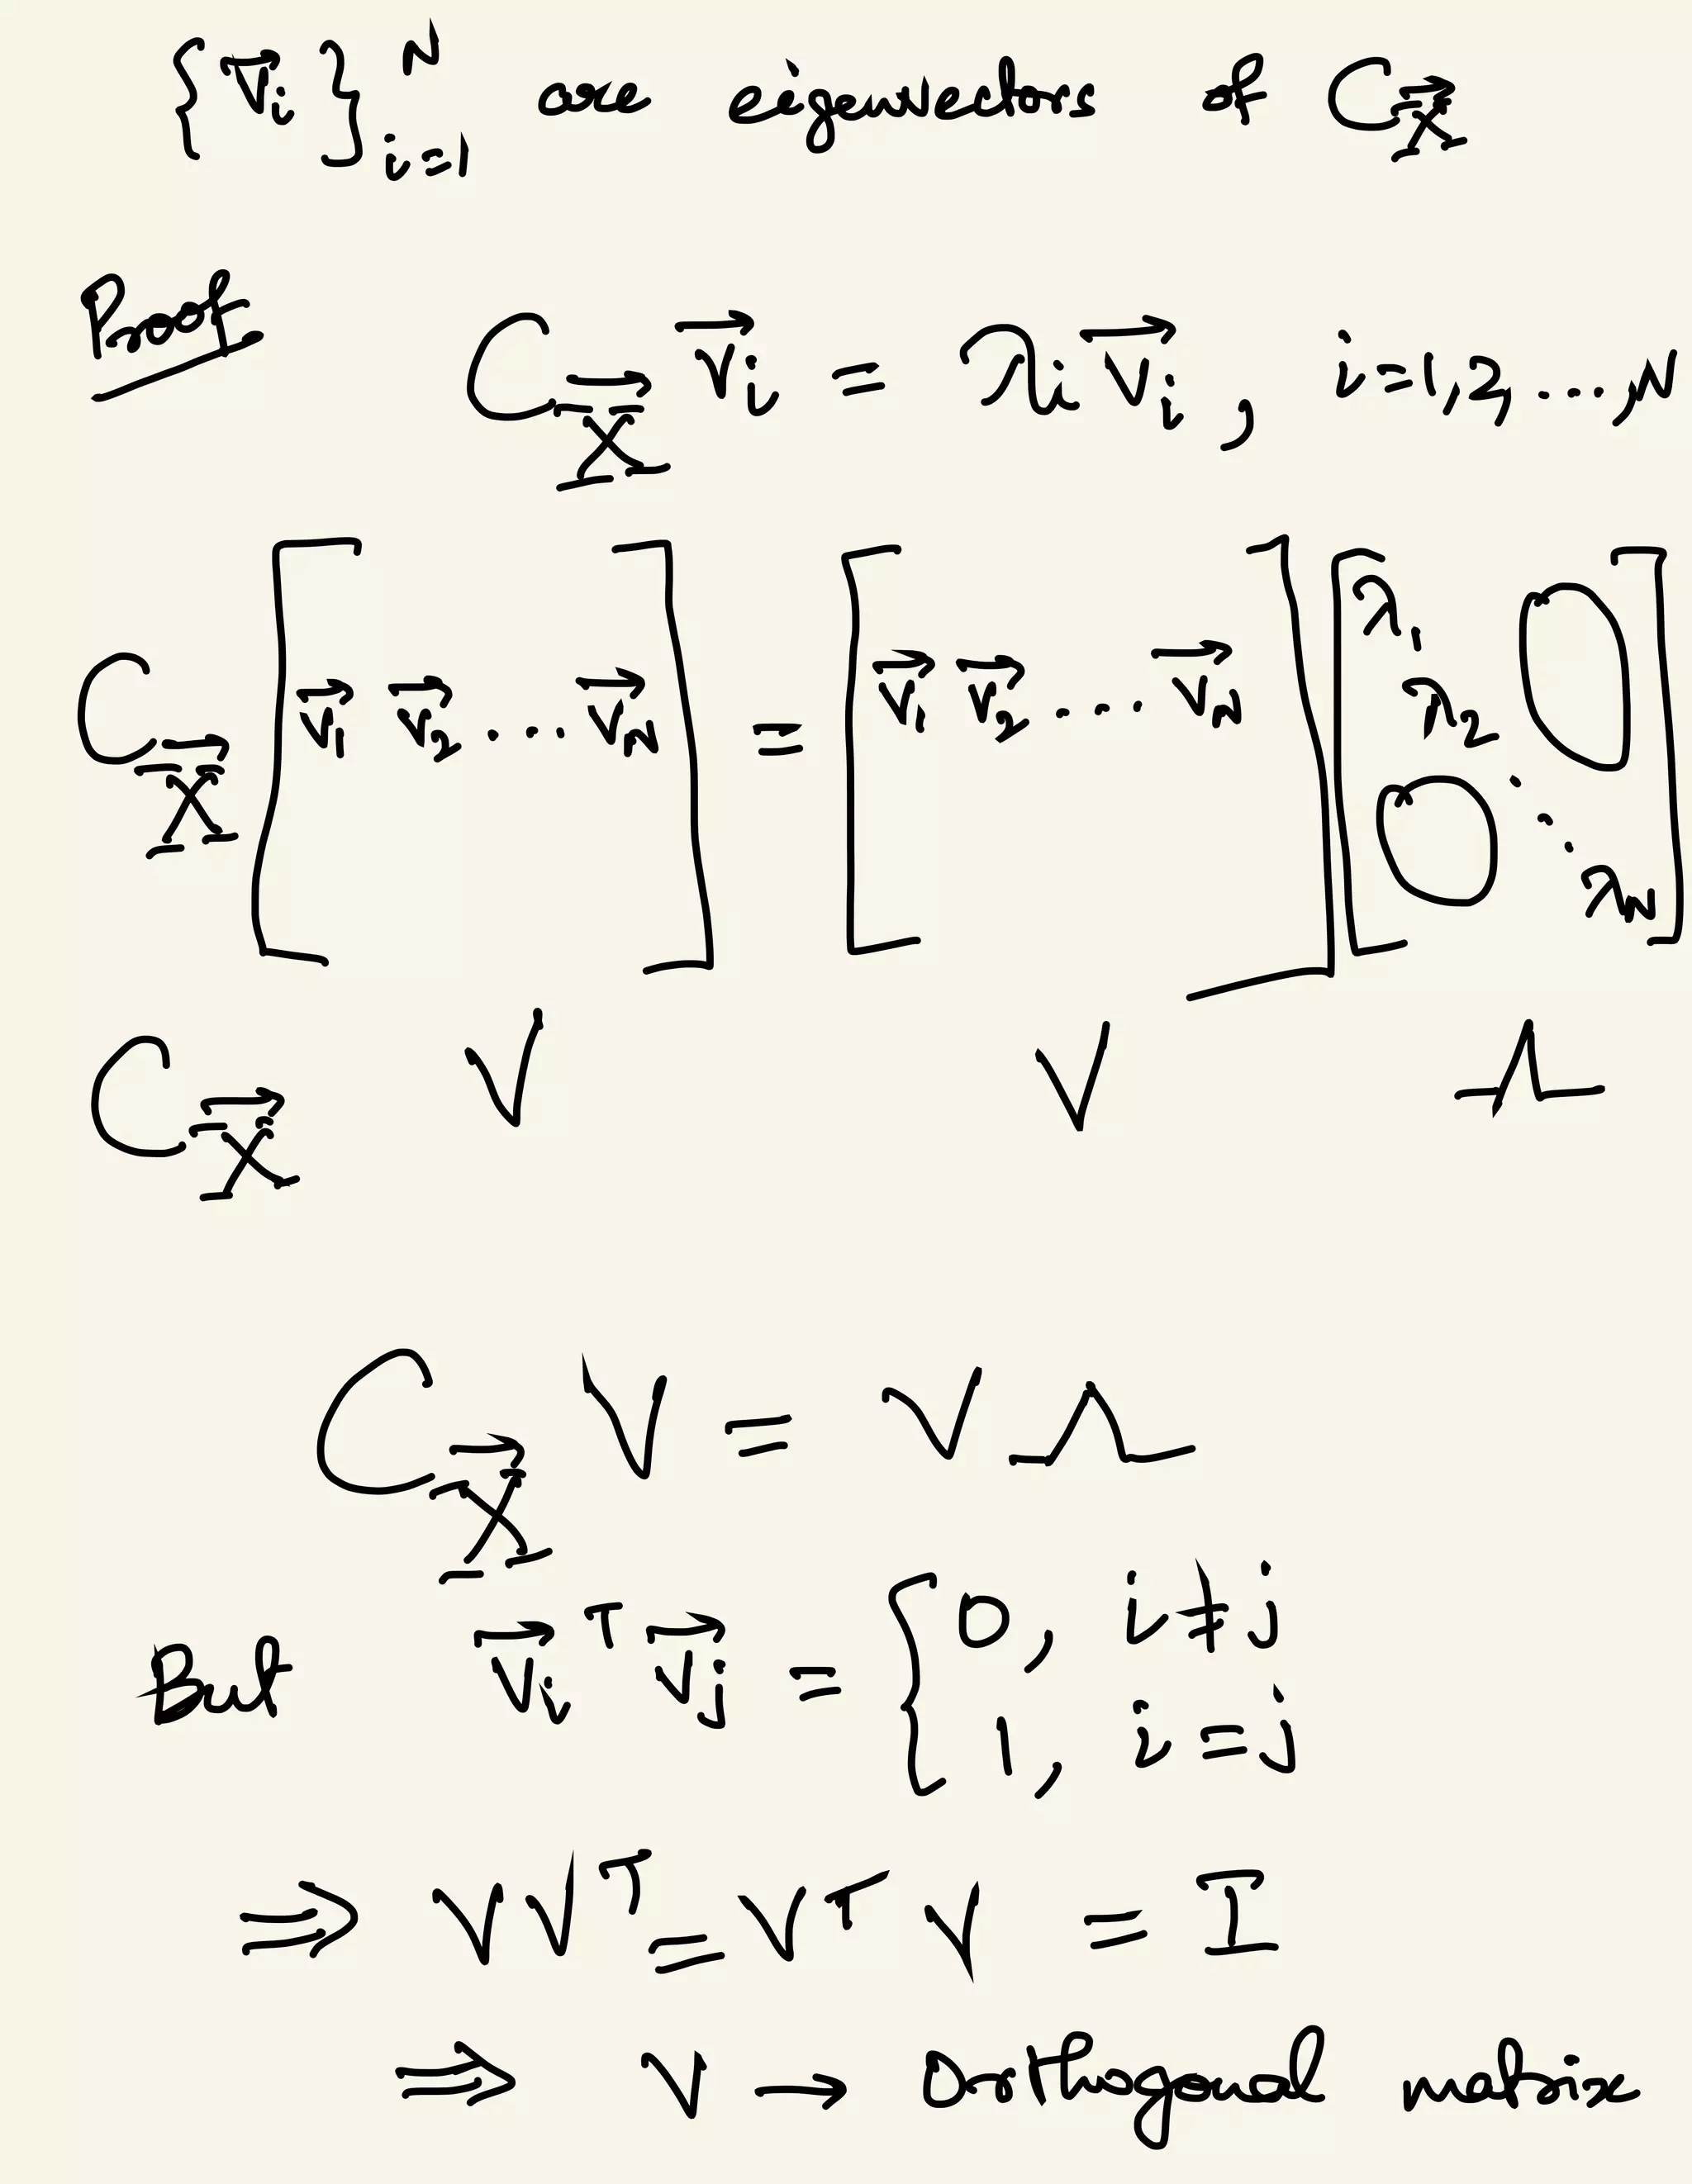 {v⃗ᵢ}ᴺᵢ₌₁ are eigenvectors of C_X⃗
Proof
C_X⃗ v⃗ᵢ = λᵢ v⃗ᵢ , i=1,2,...,N
C_X⃗ [v⃗₁ v⃗₂ ... v⃗_N] = [v⃗₁ v⃗₂ .... v⃗_N] [λ₁ λ₂ ... λ_N 0 0]
C_X⃗ V V Λ
C_X⃗ V = V Λ
But v⃗ᵢᵀ v⃗ⱼ = { 0, i≠j
1, i=j
⇒ V Vᵀ = Vᵀ V = I
⇒ V → Orthogonal matrix